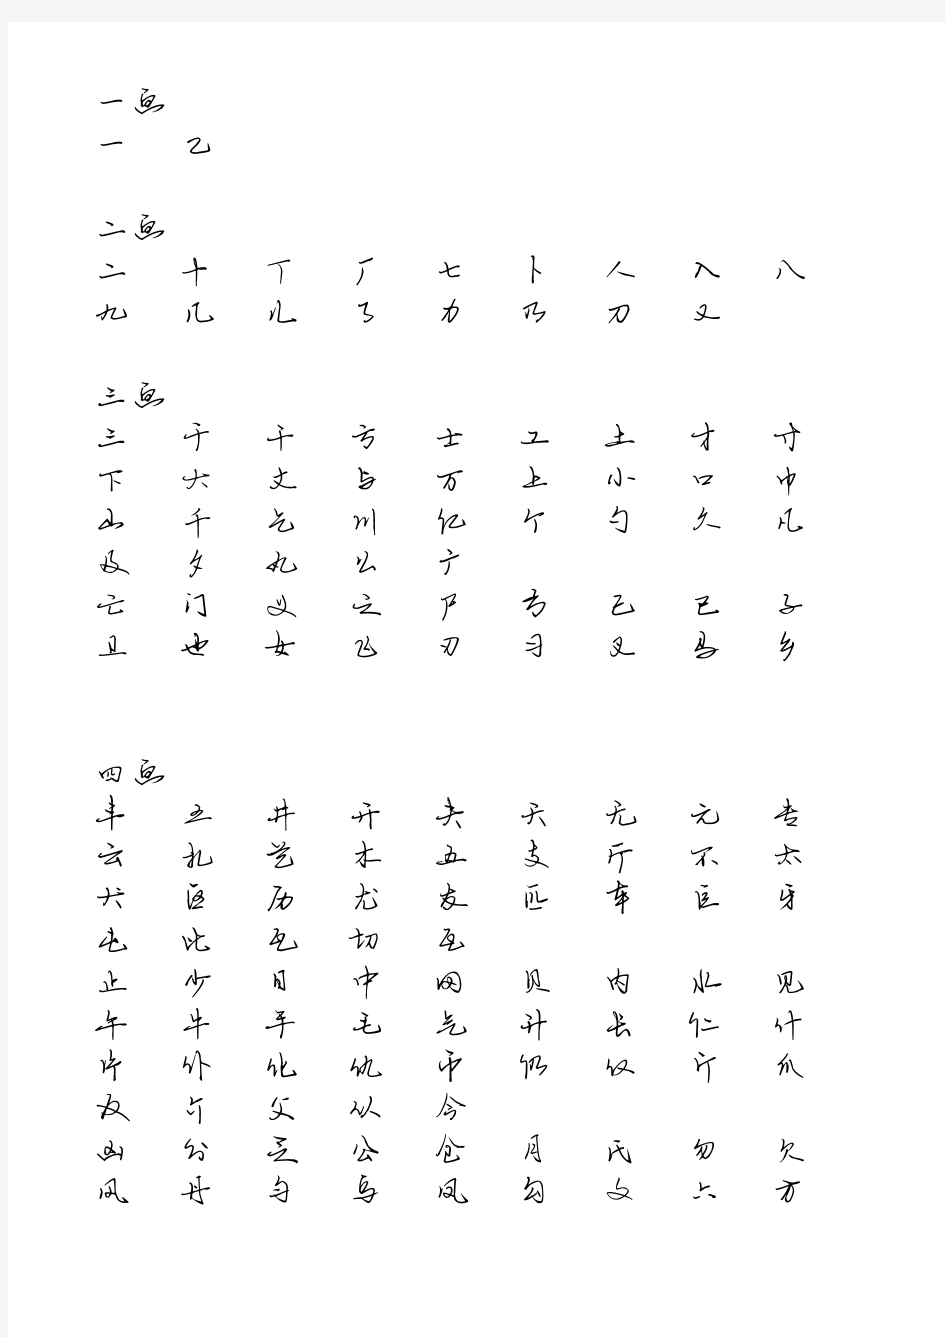 一画
一 乙
二画
二 十 丁 厂 七 卜 人 入 八
九 几 儿 了 力 乃 刀 又
三画
三 于 干 亏 士 工 土 才 寸
下 大 丈 与 万 上 小 口 巾
山 千 乞 川 亿 个 勺 久 凡
及 夕 丸 么 广
亡 门 义 之 尸 弓 己 已 子
卫 也 女 飞 刃 习 叉 马 乡
四画
丰 王 井 开 夫 天 无 元 专
云 扎 艺 木 五 支 厅 不 太
犬 区 历 尤 友 匹 车 巨 牙
屯 比 互 切 瓦
止 少 日 中 冈 贝 内 水 见
午 牛 手 毛 气 升 长 仁 什
片 仆 化 仇 币 仍 仅 斤 爪
反 介 父 从 今
凶 分 乏 公 仓 月 氏 勿 欠
风 丹 匀 乌 凤 勾 文 六 方